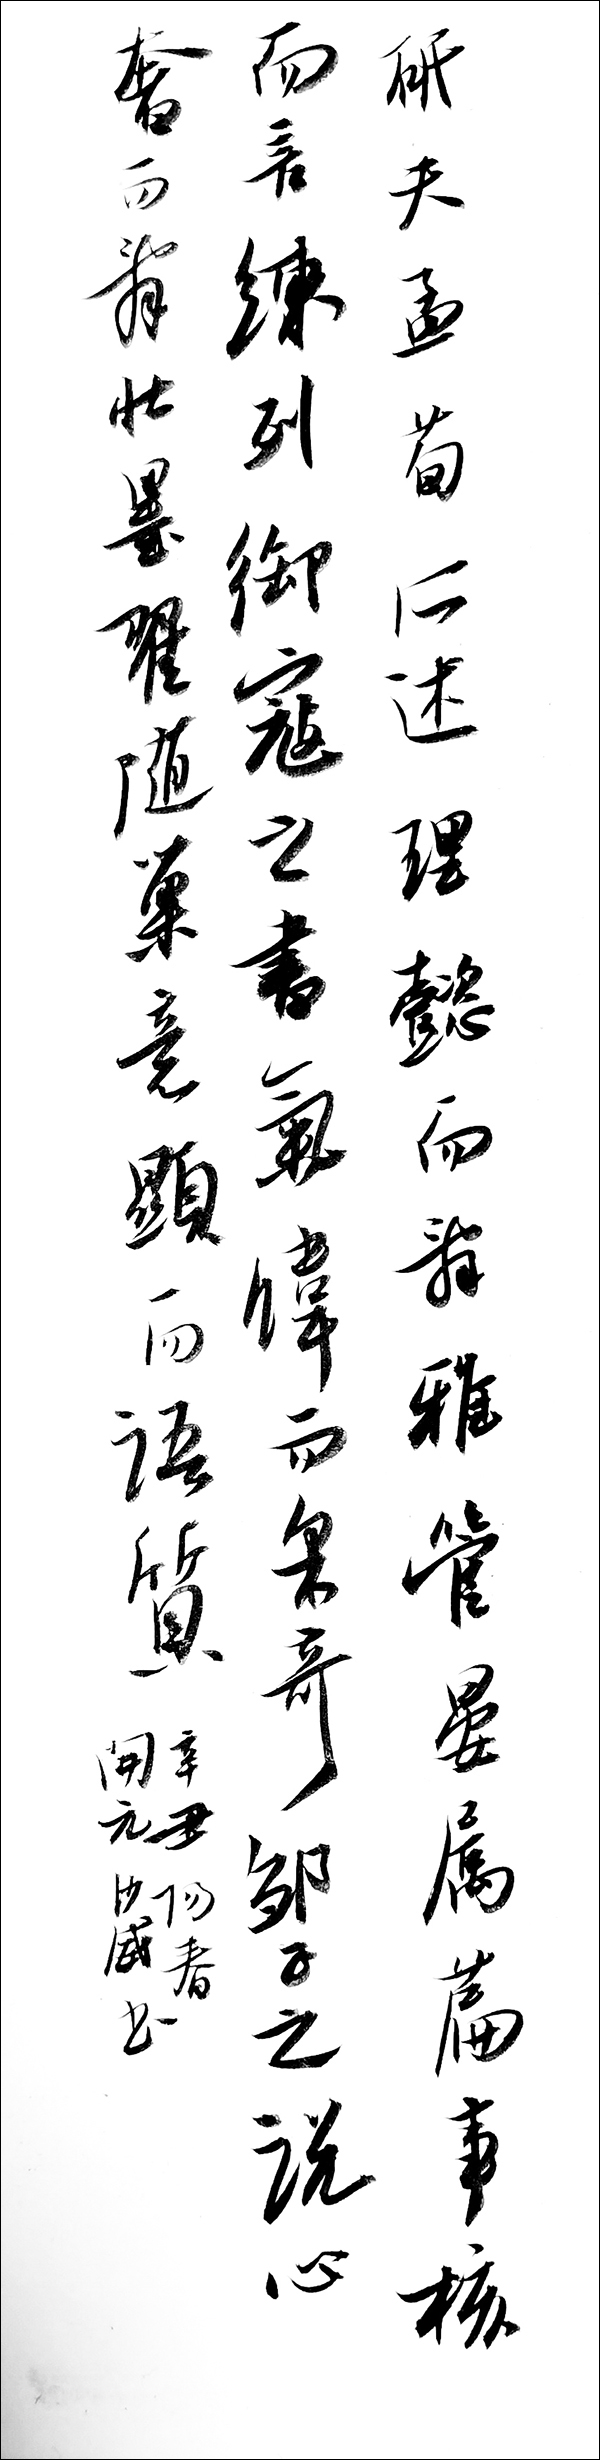 研夫孟荀所述理懿而辞雅管晏属篇事核
而言練列御寇之書氣偉而采奇邹子之説心
奢而辞壮墨翟随巢意顯而語質
辛丑阳春
開元沙威书